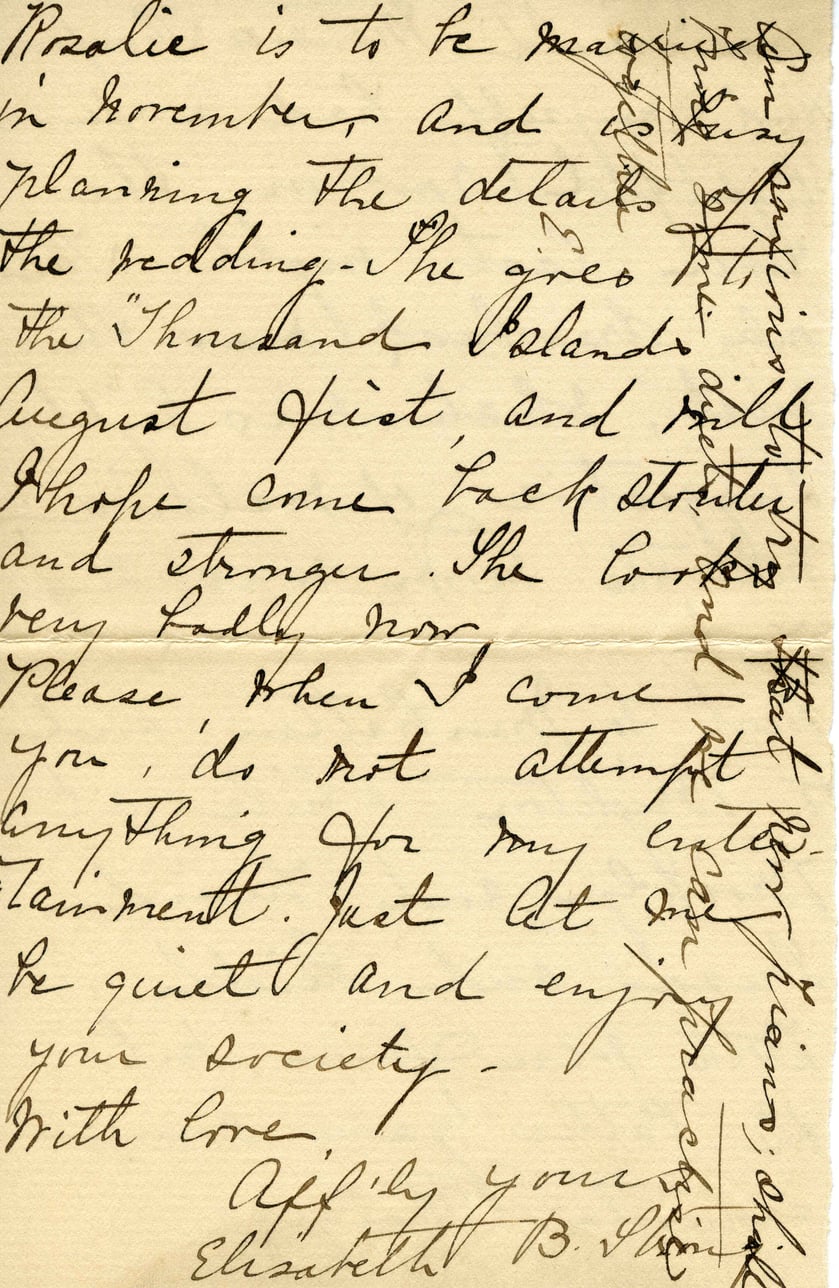 Rosalie is to be married
in November, and is busy
planning the details of
the wedding - She goes to
the "Thousand Islands"
August first, and will
I hope come back stouter
and stronger. She looks
very badly now
Please, when I come
you, do not attempt
anything for my enter-
tainment. Just let me
be quiet and enjoy
your society -
With love,
Aff'ly yours
Elisabeth B.
Am anxious to try that piano; shall
some duets, and we can practise
together
E